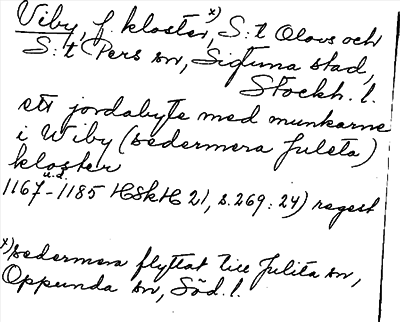 Viby, f. kloster, x) S:t Olovs och
S:t Pers sn, Sigtuna stad,
Stockh. l.
ett jordabyte med munkarne
i Wiby (sedermera Juleta)
kloster
u.d.
1167-1185 HSkH 21, s. 269: 24) regest
x) sedermera flyttat till Julita sn,
Oppunda sn, Söd. l.